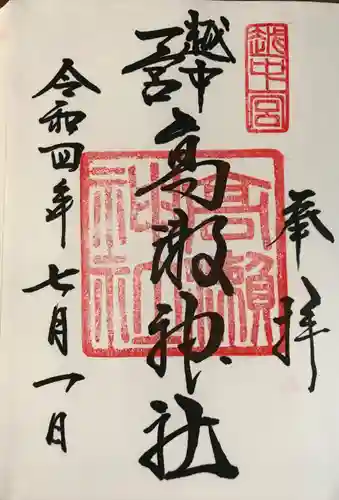 奉拝
越中
一宮
高瀬神社
令和四年七月一日
越中一宮
高瀬神社